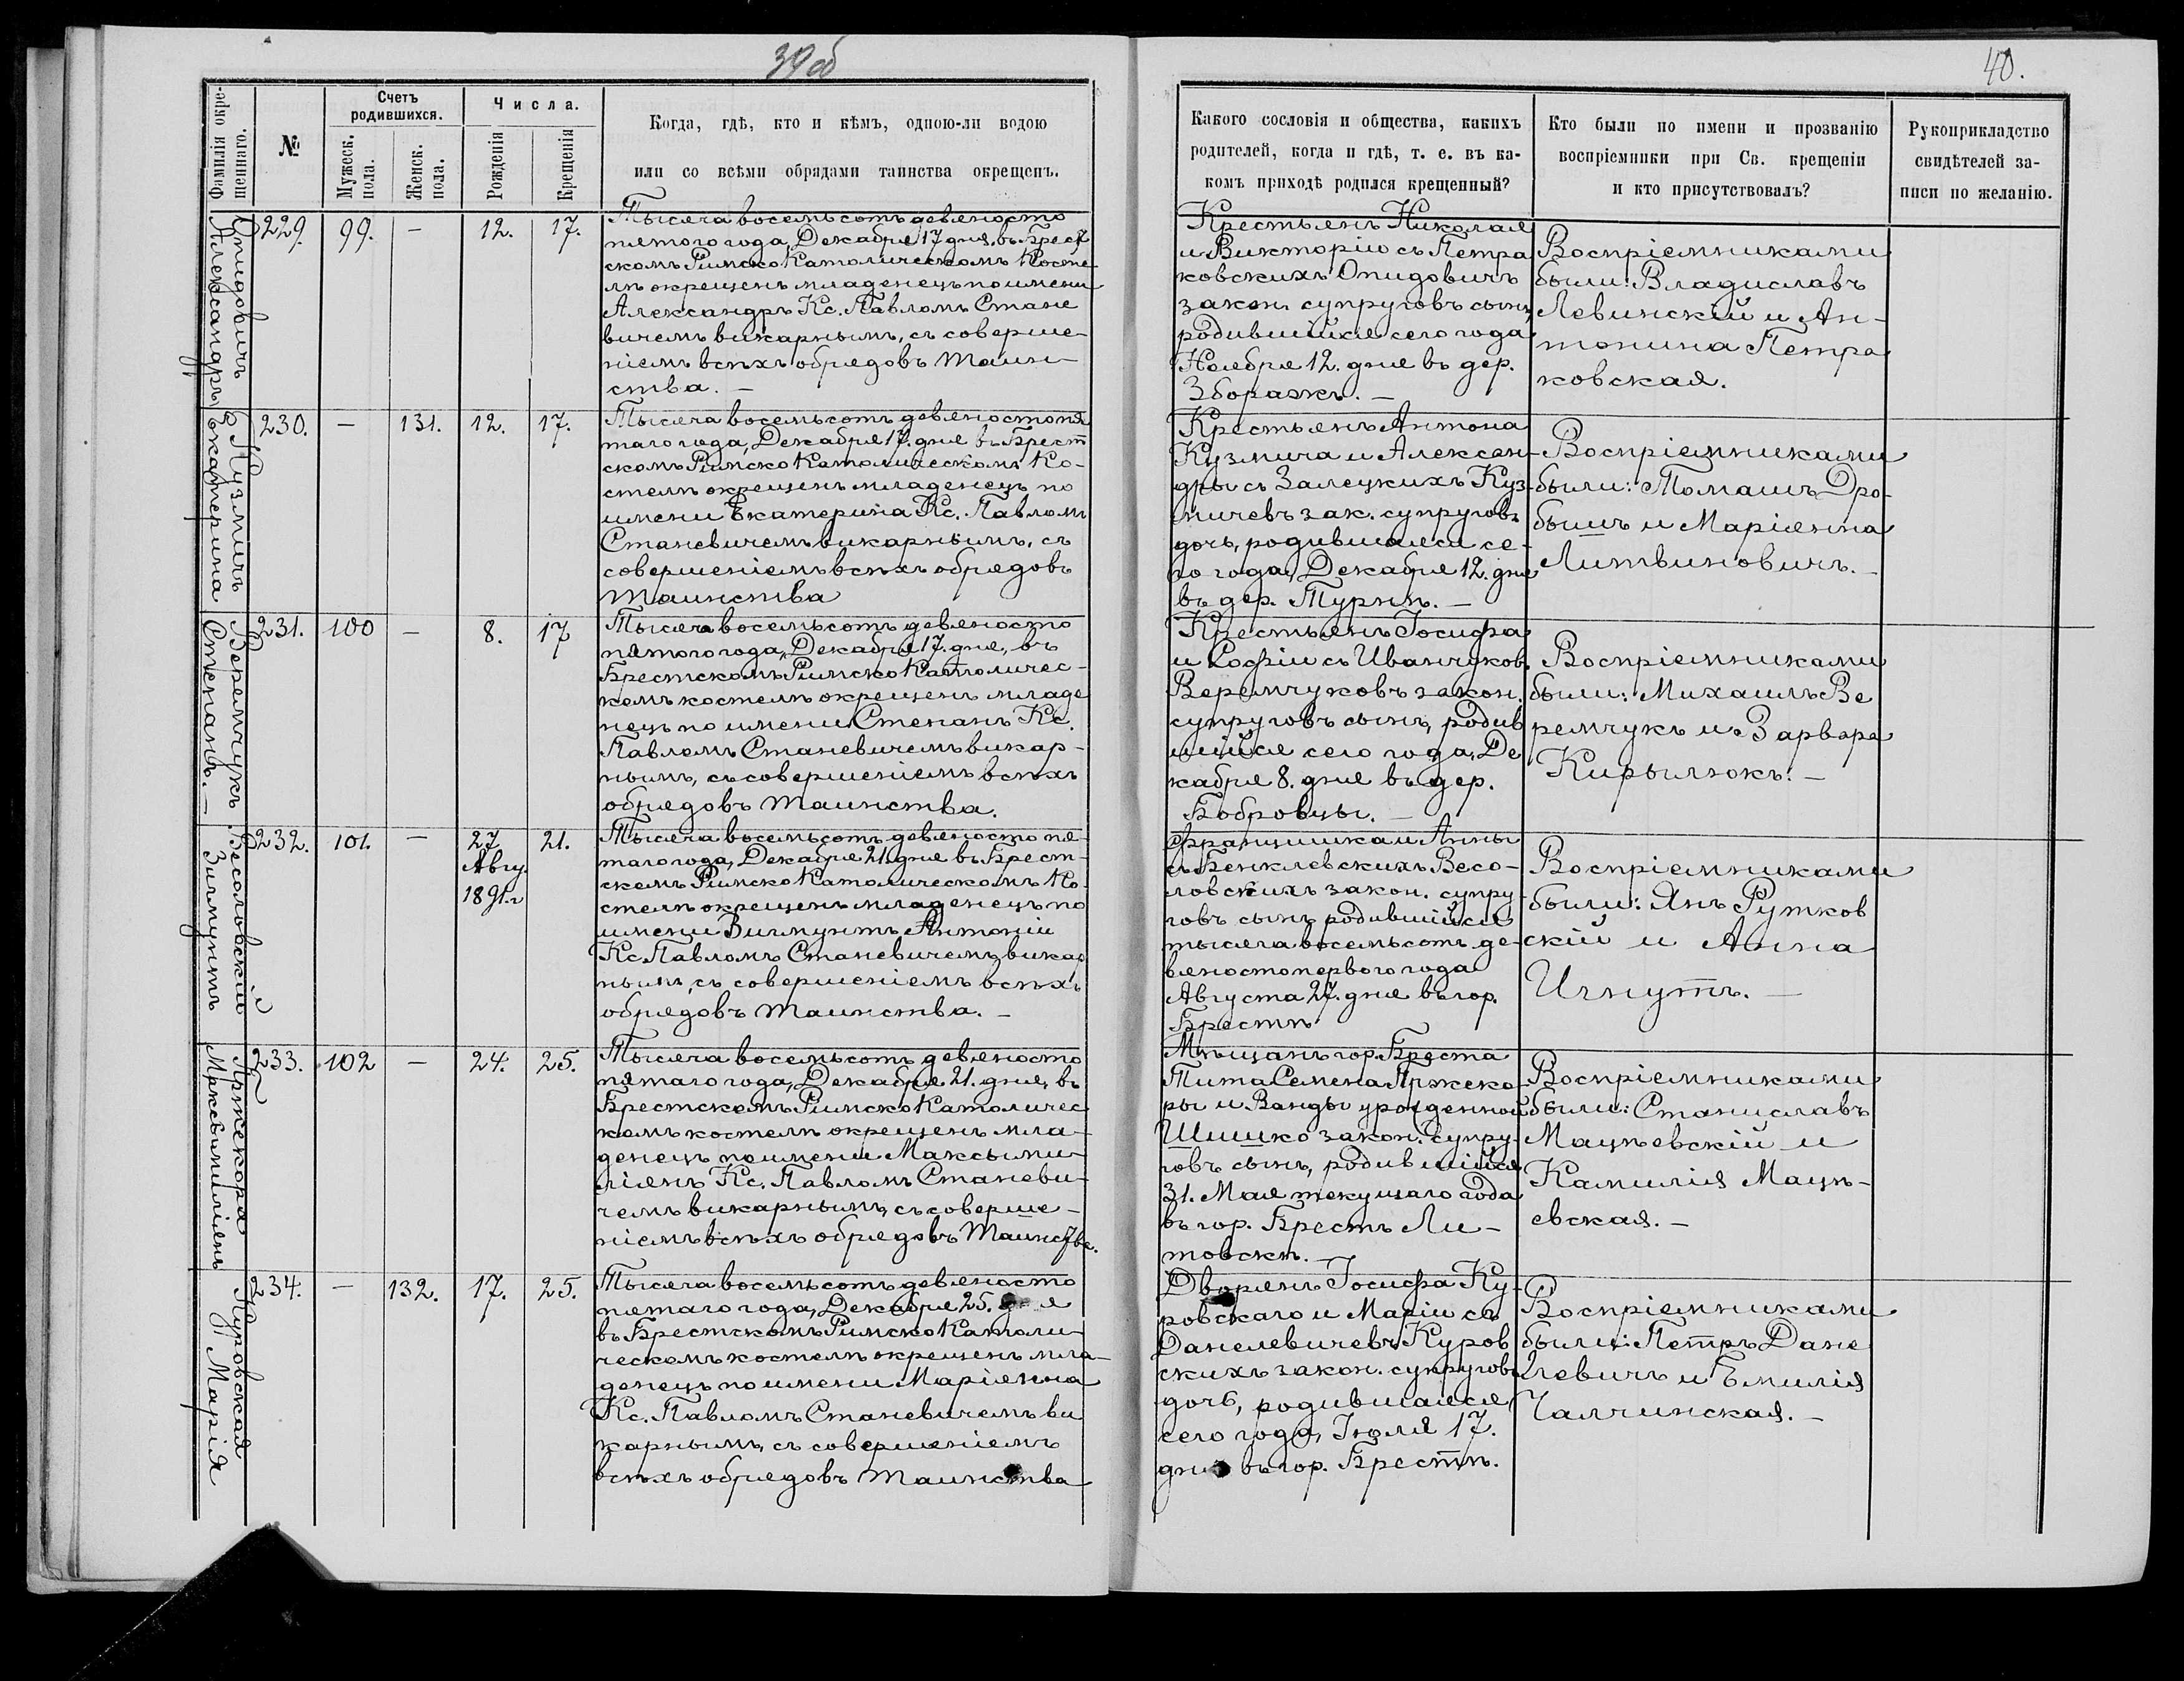 39 об
40.
Фамилія окре-
щеннаго.
№
Счетъ
родившихся.
Мужеск.
пола.
Женск.
пола.
Числа.
Рожденія
Крещенія
Когда, гдѣ, кто и кѣмъ, одною-ли водою
или со всѣми обрядами таинства окрещенъ.
Какого сословія и общества, какихъ
родителей, когда и гдѣ, т. е. въ ка-
комъ приходѣ родился крещенный?
Кто были по имени и прозванію
воспріемники при Св. крещеніи
и кто присутствовалъ?
Рукоприкладство
свидѣтелей за-
писи по желанію.
Опидовичъ
Александръ
229.
99.
—
12.
17.
Тысяча восемьсотъ девяносто
пятого года, Декабря 17 дня, въ Брест
скомъ Римско Католическомъ Косте
лѣ окрещенъ младенецъ по имени
Александръ Кс. Павломъ Стане
вичемъ викарнымъ, съ соверше-
ніемъ всѣхъ обрядовъ Таин-
ства. —
Крестьянъ Николая
и Викторіи съ Петра
ковскихъ Опидовичъ
закон. супруговъ сынъ,
родившійся сего года
Ноября 12. дня въ дер.
Зборажъ. —
Воспріемниками
были: Владиславъ
Левинскій и Ан-
тонина Петра
ковская.
Кузмичъ
Екатерина
230.
—
131.
12.
17.
Тысяча восемьсотъ девяносто пя
таго года, Декабря 17. дня въ Брест
скомъ Римско Католическомъ Ко-
стелѣ окрещенъ младенецъ по
имени Екатерина Кс. Павломъ
Станевичемъ викарнымъ, съ
совершеніемъ всѣхъ обрядовъ
Таинства
Крестьянъ Антона
Кузмича и Алексан-
дры съ Залецкихъ Куз-
мичевъ зак. супруговъ
дочь, родившаяся се-
го года, Декабря 12. дня
въ дер. Турнѣ. —
Воспріемниками
были: Томашъ Дро-
бышъ и Маріянна
Литвиновичъ. —
Веремчукъ
Степанъ. —
231.
100
—
8.
17
Тысяча восемьсотъ девяносто
пятого года, Декабря 17. дня, въ
Брестскомъ Римско Католичес-
комъ костелѣ окрещенъ младе
нецъ по имени Степанъ Кс.
Павломъ Станевичемъ викар-
нымъ, съ совершеніемъ всѣхъ
обрядовъ таинства.
Крестьянъ Іосифа
и Софіи съ Иванчуков.
Веремчуковъ закон.
супруговъ сынъ, родив
шійся сего года, Де
кабря 8. дня въ дер.
Бобровцы. —
Воспріемниками
были: Михаилъ Ве
ремчукъ и Варвара
Кирылюкъ. —
Весоловскій
Зигмунтъ
232.
101.
—
27
Авгу.
1891.г
21.
Тысяча восемьсотъ девяносто пя-
таго года, Декабря 21. дня въ Брест-
скомъ Римско Католическомъ Ко-
стелѣ окрещенъ младенецъ по
имени Зигмунтъ Антоній
Кс. Павломъ Станевичемъ викар
нымъ, съ совершеніемъ всѣхъ
обрядовъ таинства. —
Францишка и Анны
съ Бенклевскихъ Весо-
ловскихъ закон. супру-
говъ сынъ родившійся
тысяча восемьсотъ де-
вяносто первого года
Августа 27. дня въ гор.
Брестѣ
Воспріемниками
были: Янъ Рутков
скій и Анна
Игнутъ. —
Пржекора
Максимиліянъ
233.
102
—
24.
25.
Тысяча восемьсотъ девяносто
пятаго года, Декабря 21. дня, въ
Брестскомъ Римско Католичес
комъ костелѣ окрещенъ мла-
денецъ по имени Максими-
ліянъ Кс. Павломъ Станеви-
чемъ викарнымъ, съ соверше-
ніемъ всѣхъ обрядовъ Таинства.
Мѣщанъ гор. Бреста
Тита Семена Пржеко-
ры и Ванды урожденной
Шишко закон. супру-
говъ сынъ, родившійся
31. Мая текущаго года
въ гор. Брестъ Ли-
товскѣ. —
Воспріемниками
были: Станиславъ
Мацѣевскій и
Камилія Мацѣ-
евская. —
Куровская
Марія
234.
—
132.
17.
25.
Тысяча восемьсотъ девяносто
пятаго года, Декабря 25. дня
въ Брестскомъ Римско Католи-
ческомъ костелѣ окрещенъ мла-
денецъ по имени Маріянна
Кс. Павломъ Станевичемъ ви
карнымъ, съ совершеніемъ
всѣхъ обрядовъ таинства
Дворянъ Іосифа Ку-
ровскаго и Маріи съ
Данелевичевъ Куров
скихъ закон. супруговъ
дочь, родившаяся
сего года, Іюля 17.
дня въ гор. Брестѣ.
Воспріемниками
были: Петръ Дане
левичъ и Емилія
Чалчинская. —